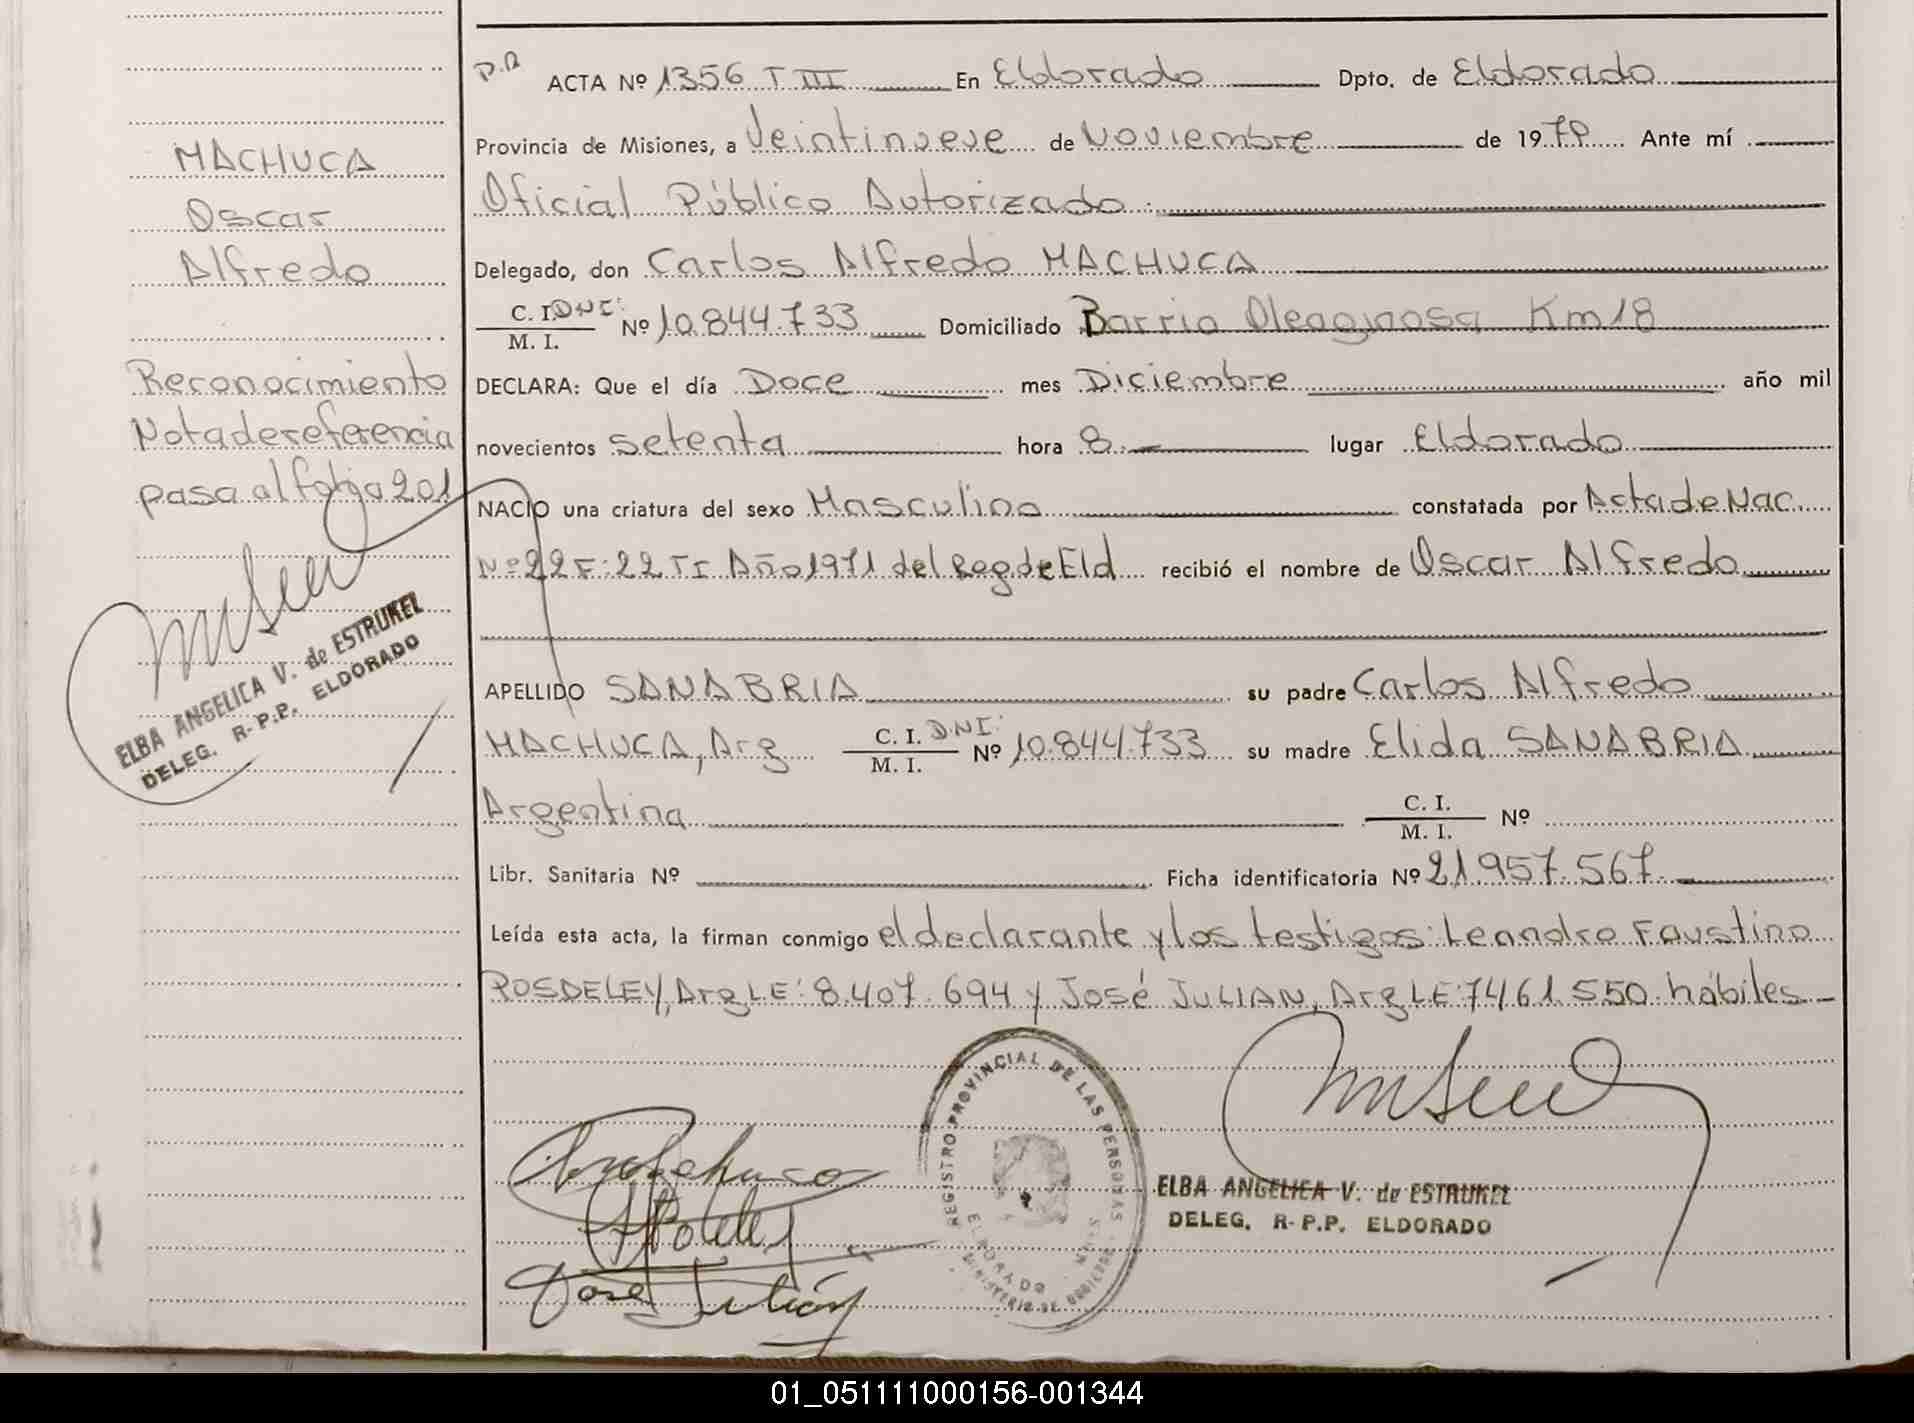 D.R
ACTA Nº 1356 T III En Eldorado Dpto. de Eldorado
Provincia de Misiones, a Veintinueve de Noviembre de 1979 Ante mí
Oficial Público Autorizado
Delegado, don Carlos Alfredo MACHUCA
C. I. DNI: Nº 10.844.733 Domiciliado Barrio Oleaginosa Km18
M. I.
DECLARA: Que el día Doce mes Diciembre año mil
novecientos setenta hora 8 lugar Eldorado
NACIO una criatura del sexo Masculino constatada por Acta de Nac.
Nº 22 F: 22 TI Año 1971 del Reg de Eld recibió el nombre de Oscar Alfredo
APELLIDO SANABRIA su padre Carlos Alfredo
MACHUCA, Arg C. I. DNI: Nº 10.844.733 su madre Elida SANABRIA
M. I.
Argentina C. I. Nº
M. I.
Libr. Sanitaria Nº Ficha identificatoria Nº 21.957.567
Leída esta acta, la firman conmigo el declarante y los testigos: Leandro Faustino
POSDELEY, Arg LE: 8.407.694 y José JULIAN, Arg LE: 7461.550 hábiles
MACHUCA
Oscar
Alfredo
Reconocimiento
Nota de referencia
pasa al folio 201
ELBA ANGELICA V. de ESTRUKEL
DELEG. R-P.P. ELDORADO
REGISTRO PROVINCIAL DE LAS PERSONAS
ELDORADO
MINISTERIO DE
José Julián
ELBA ANGELICA V. de ESTRUKEL
DELEG. R-P.P. ELDORADO
01_051111000156-001344